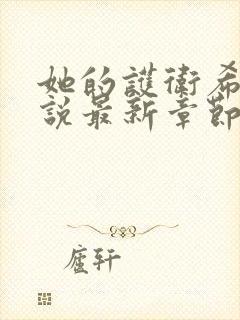 她的護衛希
說最新章節
廬軒